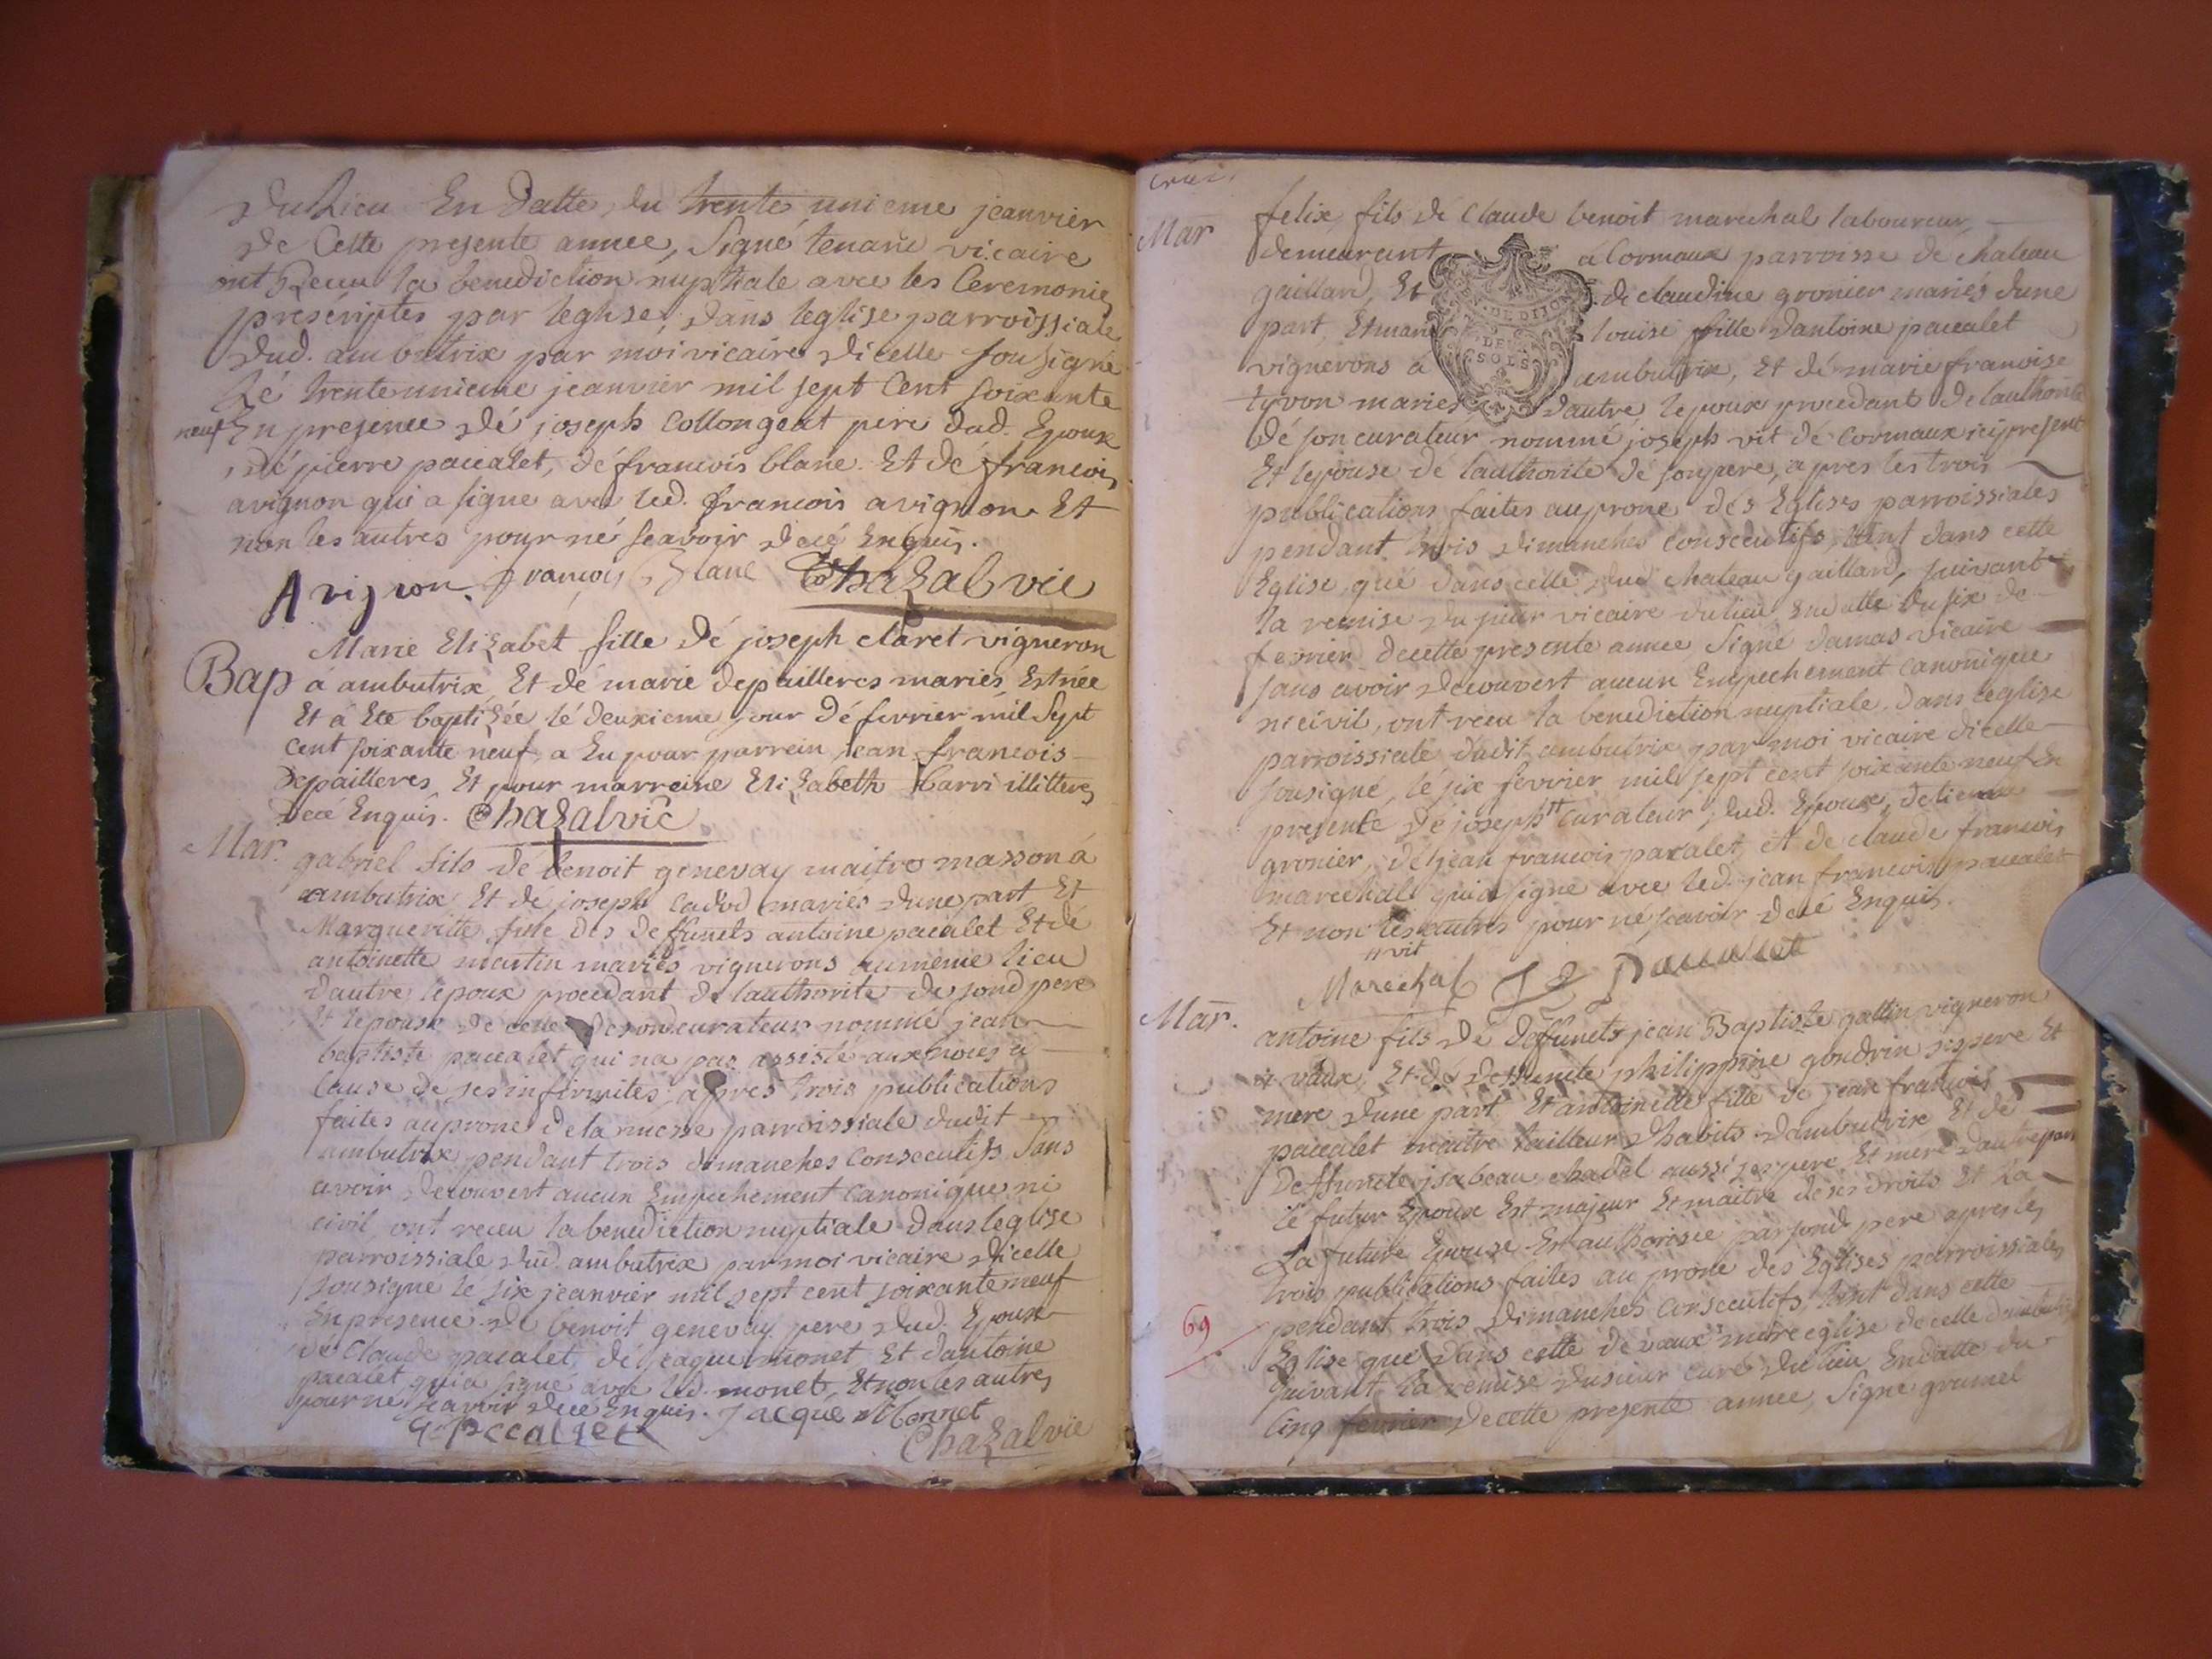 du Lieu En Datte, du trente unieme jeanvier
de Cette presente annee, Signé tenand vicaire
ont Receu la benediction nuptiale avec les Ceremonies
prescriptes par leglise, dans leglise parroissiale
dud. ambutrix par moi vicaire dicelle sousigné
Lé trente unieme jeanvier mil sept Cent soixante
neuf En presence dé joseph Collongeat pere dud. Epoux
, dé pierre pacalet, dé francois blanc Et dé francois
avignon qui a signe avec led. francois avignon Et
non les autres pour né scavoir decé Enquis.
Avignon francois Blanc Chazal vic
Marie Elizabét fille dé joseph claret vigneron
Bap á ambutrix, Et dé marie depailleres mariés, Est née
Et á Eté baptizée lé deuxieme jour dé fevrier mil Sept
cent soixante neuf, a Eu pour parrein jean francois
Depailleres Et pour marreine Elizabeth
Decé Enquis. Chazal vic
Mar. gabriel fils dé benoit genevay maitre masson á
ambutrix Et dé joseph Cadod mariés dune part, Et
Marguerite fille des deffunets antoine pacalet Et dé
antoinette martin mariés vignerons au même lieu
dautre, lepoux procedant de lauthorité de sond pere
Et lepouse de celle de son curateur nommé jean
baptiste pacalet qui na pas assisté aux noces a
cause de ses infirmites, apres trois publications
faites au prone de la messe parroissiale dudit
ambutrix pendant trois dimanches Consecutifs Sans
avoir decouvert aucun Empechement Canonique ni
civil, ont receu la benediction nuptiale dans leglise
parroissiale dud. ambutrix par moi vicaire dicelle
sousigné le six jeanvier mil sept cent soixante neuf
En presence de benoit genevay pere dud. Epoux
dé Claude pacalet, dé jaque monet Et dantoine
pacalet qui a signé avec led. monet, Et non les autres
pour né scavoir decé Enquis. Jacque Monnet
Chazal vic
Mar felix, fils dé Claude benoit marechal laboureur,
demeurant á Cormaux parroisse de chateau
gaillard, Et de claudine gronier mariés dune
part, Et marie louise fille dantoine pacalet
vignerons á ambutrix, Et dé marie francoise
tyvon mariés dautre, lepoux procedant de lauthorité
dé son curateur nommé joseph vit dé Cormaux ici present
Et lepouse dé lauthorité dé son pere, apres les trois
publications faites au prone des Eglises parroissiales
pendant trois dimanches consecutifs, tant dans cette
Eglise que dans celle dud chateau gaillard, suivant
la remise du sieur vicaire du lieu En datte du six de
fevrier decette presente annee Signé damas vicaire
sans avoir decouvert aucun Empechement canonique
ni civil, ont receu la benediction nuptiale dans leglise
parroissiale dudit ambutrix par moi vicaire dicelle
sousigné, lé six fevrier mil sept cent soixante neuf En
presence dé joseph curateur dud. Epoux,
gronier, dé jean francois pacalet, Et de claude francois
marechal qui a signé avec led. jean francois pacalet
Et non les autres pour né scavoir decé Enquis.
vit
Marechal
Mar. antoine fils dé deffunets jean Baptiste gattin vigneron
á vaux, Et dé deffunete philippine goudrin ses pere Et
mere dune part Et antoinette fille de jean francois
pacalet maitre tailleur dhabits dambutrix Et dé
deffunete jsabeau chadel aussi ses pere Et mere dautre part
Lé futur Epoux Est majeur Et maitre de ses droits Et La
La future Epouse Est authorisée par sond pere apres les
trois publications faites au prone des Eglises parroissiales
pendant trois dimanches consecutifs, tant dans cette
69 Eglise que dans cette dé vaux mere eglise de celle dambutrix
suivant la remise du sieur curé du lieu En datte du
Cinq fevrier decette presente annee, Signé grumel